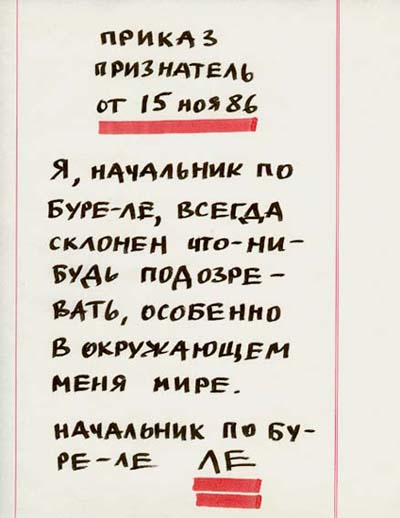 ПРИКАЗ
ПРИЗНАТЕЛЬ
ОТ 15 НОЯ 86
Я, НАЧАЛЬНИК ПО
БУРЕ-ЛЕ, ВСЕГДА
СКЛОНЕН ЧТО-НИ-
БУДЬ ПОДОЗРЕ-
ВАТЬ, ОСОБЕННО
В ОКРУЖАЮЩЕМ
МЕНЯ МИРЕ.
НАЧАЛЬНИК ПО БУ-
РЕ-ЛЕ ЛЕ